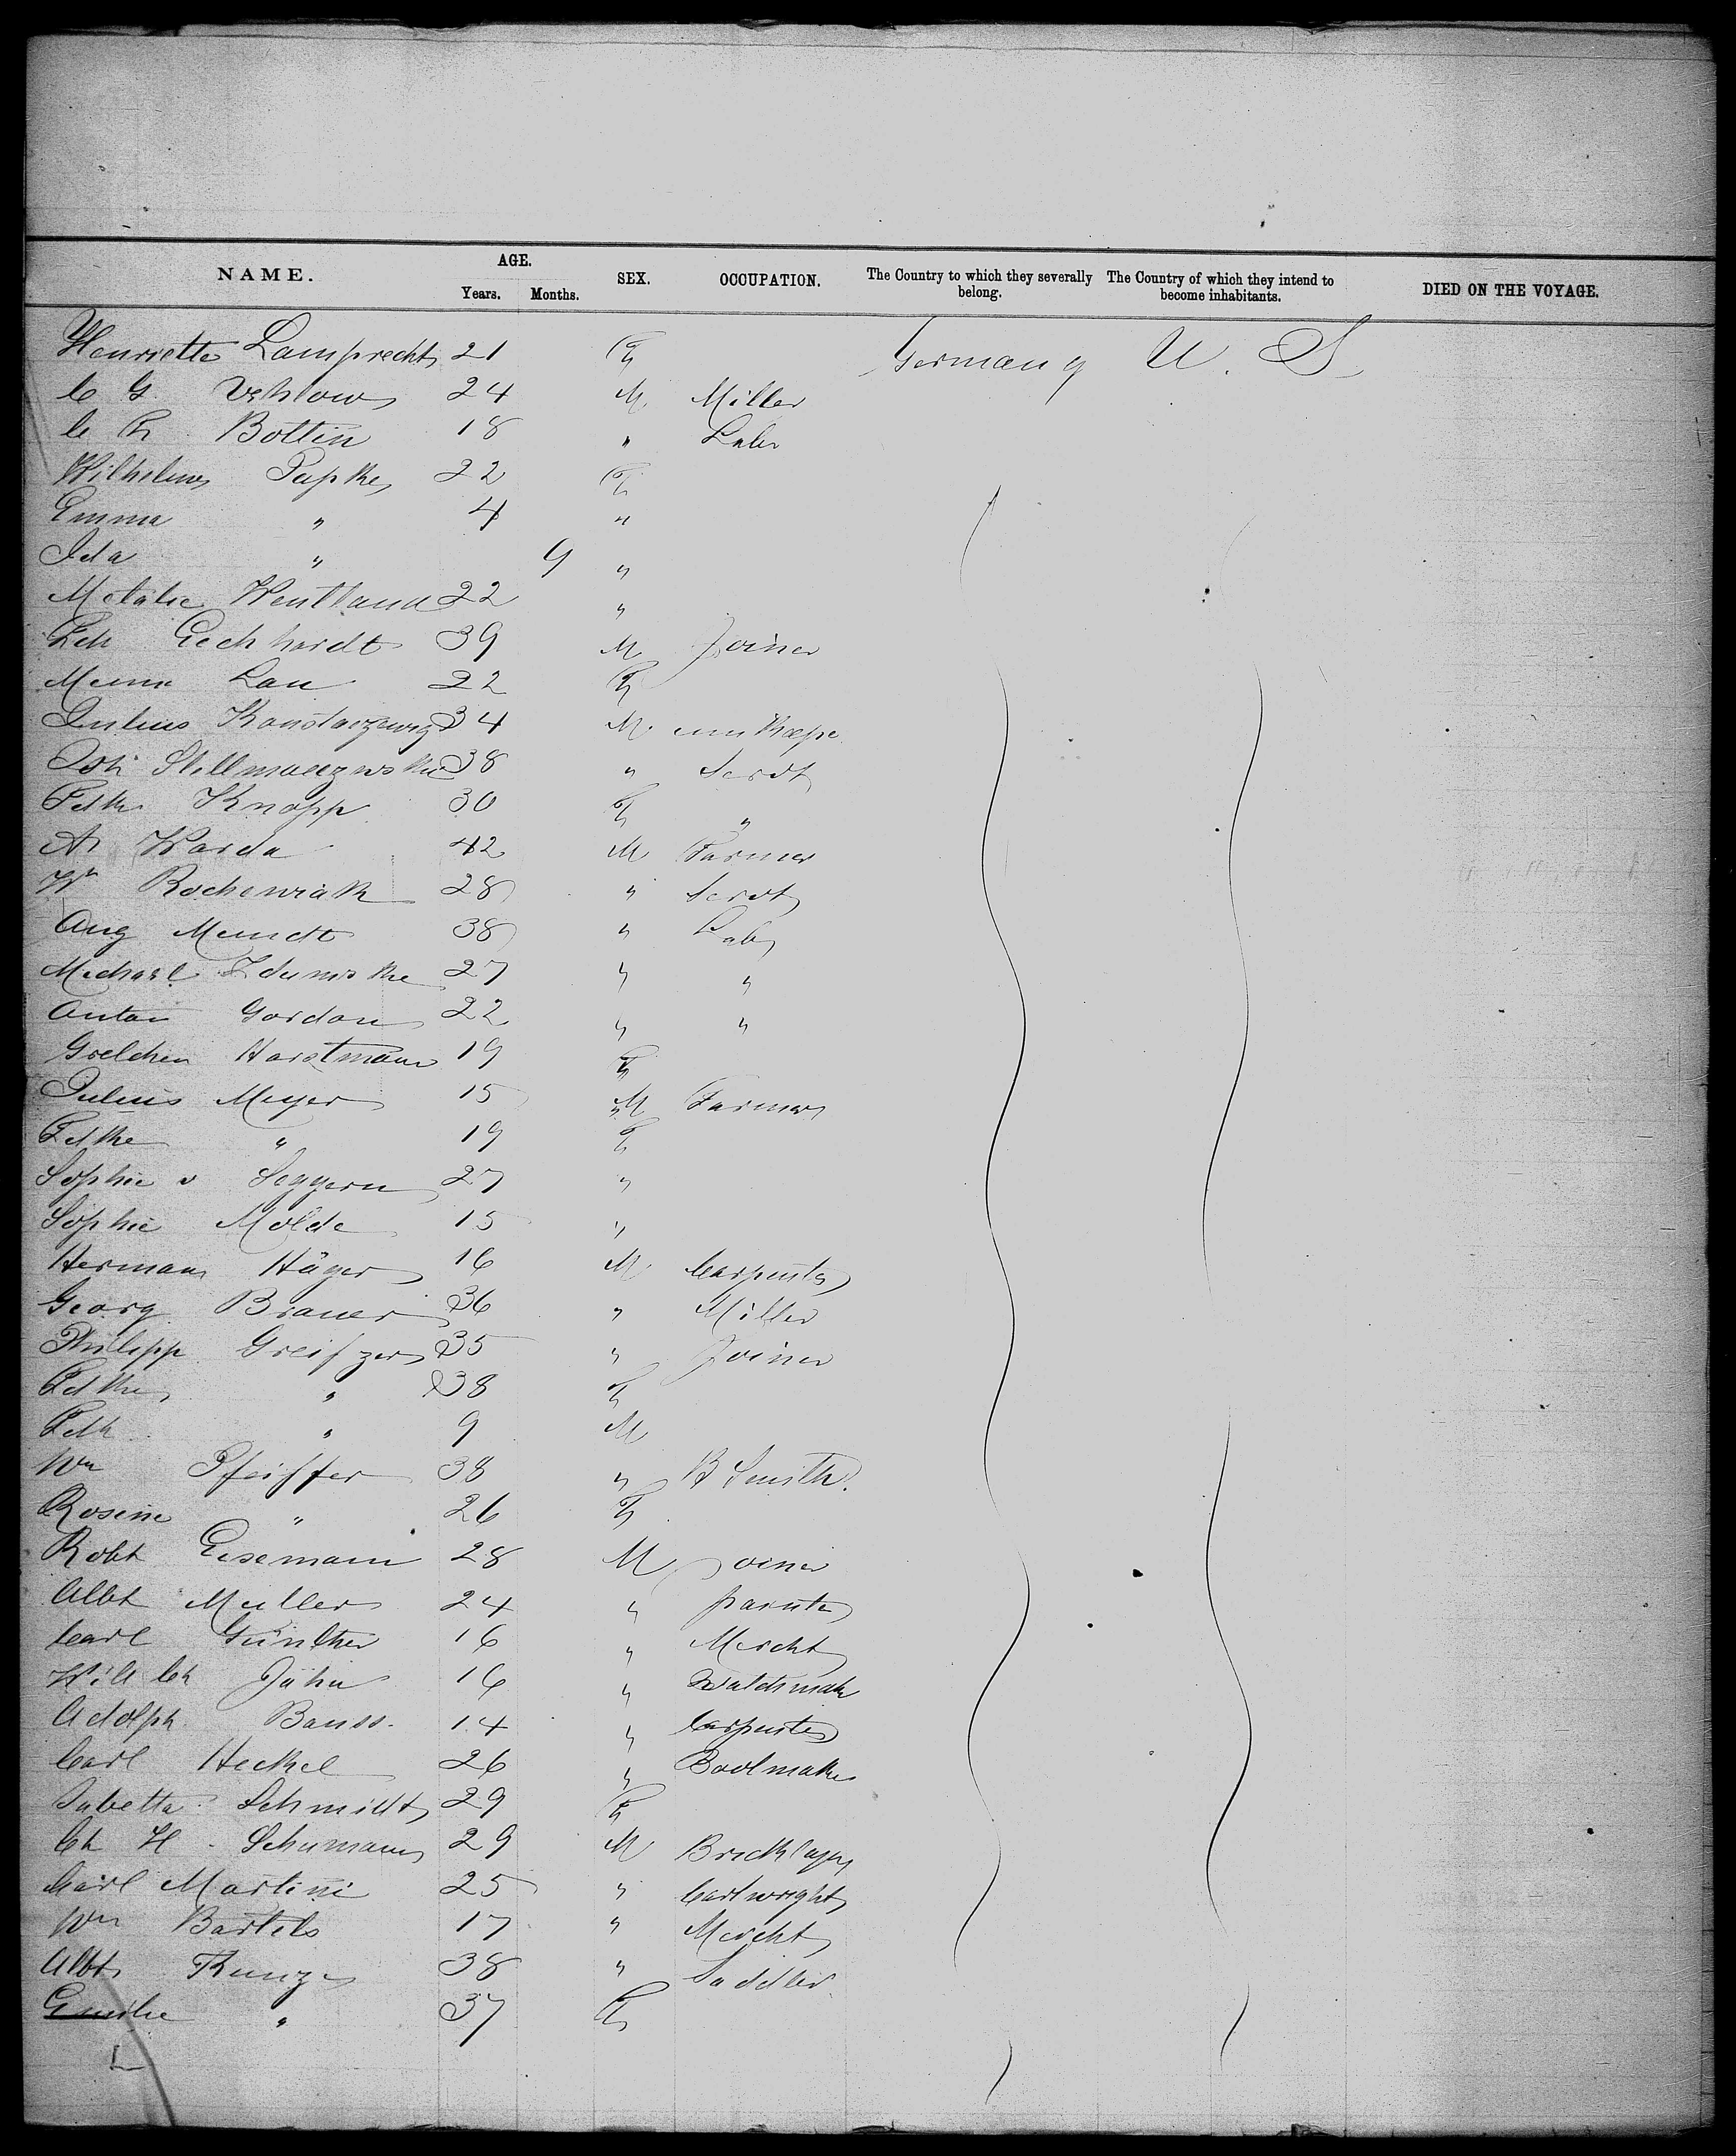 NAME. AGE. Years. Months. SEX. OCCUPATION. The Country to which they severally belong. The Country of which they intend to become inhabitants. DIED ON THE VOYAGE.
Henriette Lamprecht 21 F Germany U. S
C G Vehlow 24 M Miller
C Bottin 18 " Labr
Wilhelm Papke 22 F
Emma " 4 "
Ida " 9 "
Wentland 22 "
Fdk Eechhardt 39 M Joiner
Lau 22 F
Julius 34 M
38 " Servt
Fdke Knopp 30 F "
A Warda 42 M Farmer
Wm 28 " Servt
Aug Mundt 38 " Lab
Michael 27 " "
Anton Gordon 22 " "
Gretchen Horstmann 19 F
Julius Meyer 15 M Farmer
Fdke " 19 F
Sophie v Seggern 27 "
Sophie Molde 15 "
Herman Häger 16 M Carpenter
Georg Brauer 36 " Miller
Philipp Greifzer 35 " Joiner
Fdke " 38 F
Fdk " 9 M
Wm Pfeiffer 38 " B Smith.
Rosine " 26 F
Robt Eisemann 28 M Joiner
Albt Muller 24 " painter
Carl Günther 16 " Mercht
Jahn 16 " Watchmak
Adolph Bauss 14 " Carpenter
Carl Heckel 26 " Bootmaker
Schmidt 29 F
Ch H Schumann 29 M Bricklayer
Carl Martini 25 " Cartwright
Wm Bartels 17 " Mercht
Albt Kunze 38 " Saddler
Emilie " 37 F